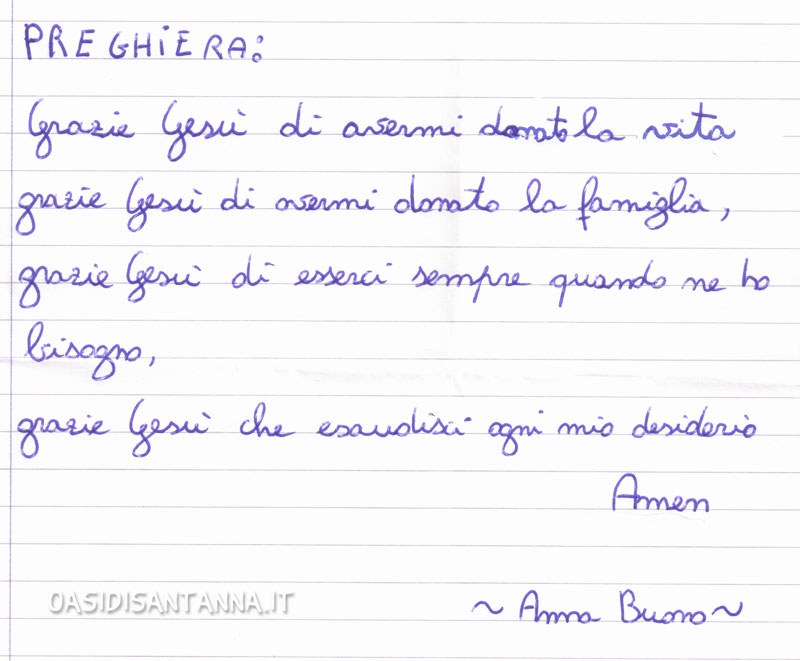 PREGHIERA:
Grazie Gesù di avermi donato la vita
grazie Gesù di avermi donato la famiglia,
grazie Gesù di esserci sempre quando ne ho
bisogno,
grazie Gesù che esaudisci ogni mio desiderio
Amen
OASIDISANTANNA.IT
~ Anna Buono ~